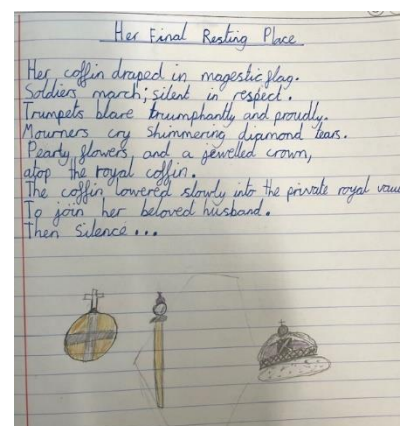 Her Final Resting Place
Her coffin draped in magestic flag.
Soldiers march; silent in respect.
Trumpets blare triumphantly and proudly.
Mourners cry shimmering diamond tears.
Pearly flowers and a jewelled crown,
atop the royal coffin.
The coffin lowered slowly into the private royal
To join her beloved husband.
Then silence...